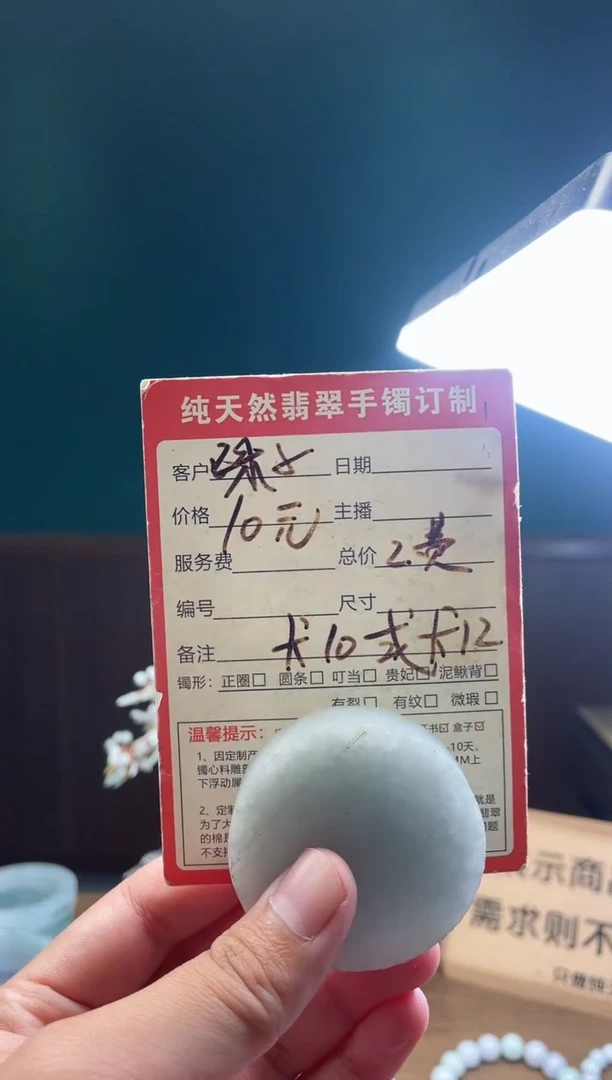 纯天然翡翠手镯订制
客户 日期
价格10元 主播
服务费 总价
编号 尺寸
备注 卡10或卡12
镯形: 正圈□ 圆条□ 叮当□ 贵妃□ 泥鳅背□
有裂□ 有纹□ 微瑕□
温馨提示: 书☑ 盒子☑
1、因定制产 10天,
镯心料雕 4M上
下浮动属
2、定制 就是
为了大 翡翠
的棉是 问题
不支持
示商品
需求则不